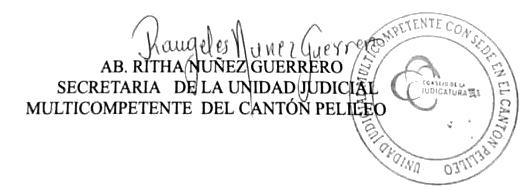 Rangeles Nunez Guerrero
AB. RITHA NUÑEZ GUERRERO
SECRETARIA DE LA UNIDAD JUDICIAL
MULTICOMPETENTE DEL CANTÓN PELILEO
UNIDAD JUDICIAL MULTICOMPETENTE CON SEDE EN EL CANTON PELILEO
CONSEJO DE LA
JUDICATURA